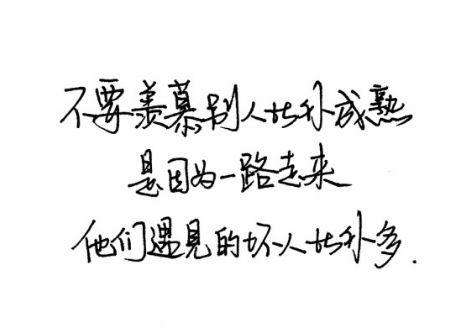 不要羡慕别人比你成熟
是因为一路走来
他们遇見的坏人比你多.